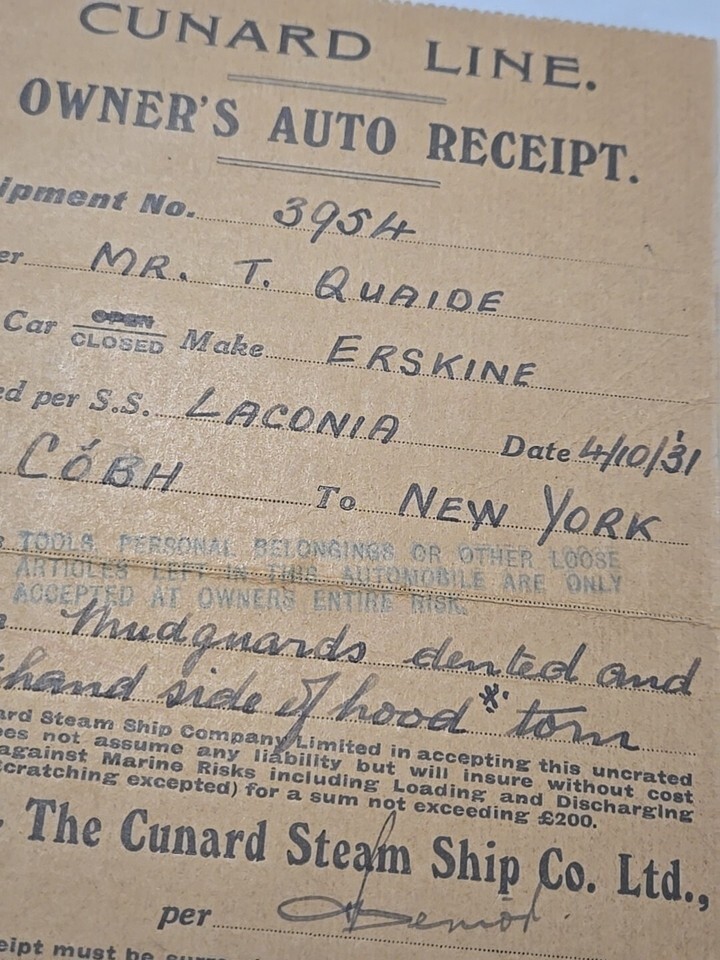 CUNARD LINE.
OWNER'S AUTO RECEIPT.
ipment No. 3954
er MR. T. QUAIDE
Car OPEN
CLOSED Make ERSKINE
ed per S.S. LACONIA Date 4/10/31
CÓBH To NEW YORK
TOOLS, PERSONAL BELONGINGS OR OTHER LOOSE
ARTICLES LEFT IN THIS AUTOMOBILE ARE ONLY
ACCEPTED AT OWNERS ENTIRE RISK.
Mudguards dented and
hand side of hood * torn
ard Steam Ship Company Limited in accepting this uncrated
oes not assume any liability but will insure without cost
against Marine Risks including Loading and Discharging
cratching excepted) for a sum not exceeding £200.
The Cunard Steam Ship Co. Ltd.,
per
eipt must be